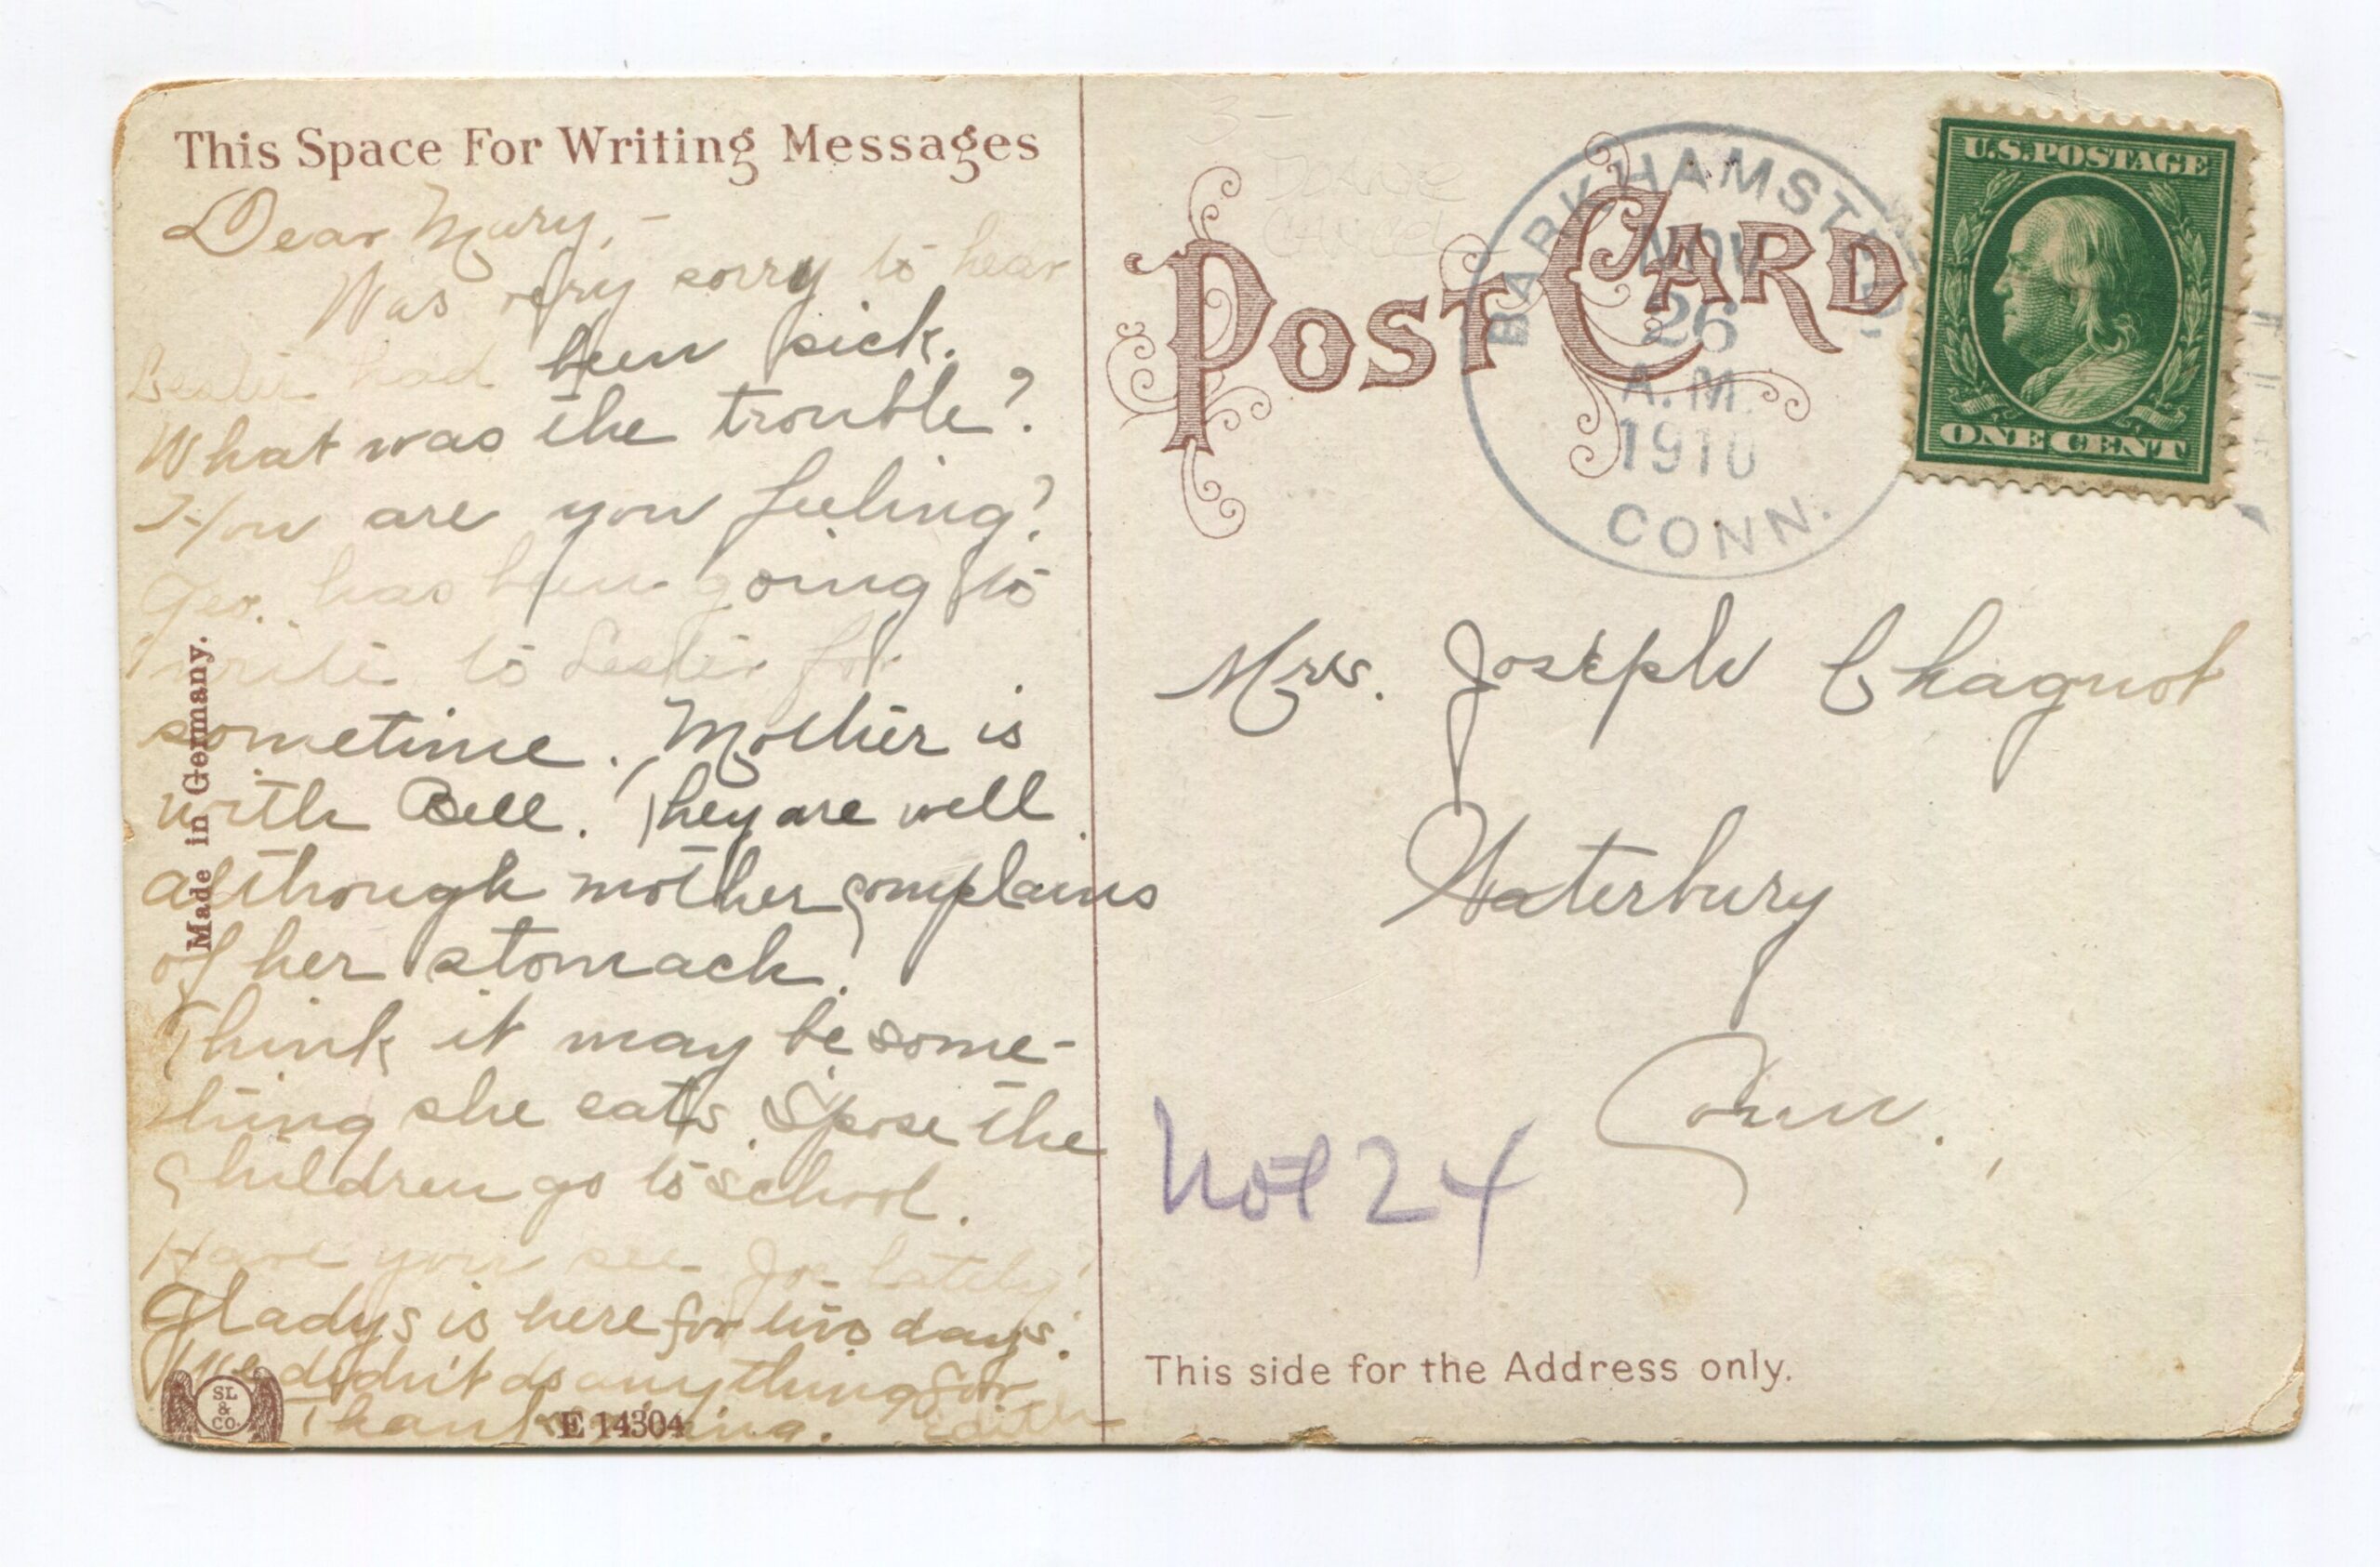 This Space For Writing Messages
Dear Mary, -
Was very sorry to hear
Lester had been sick.
What was the trouble?
How are you feeling?
Geo. has been going to
write to Lester for
sometime. Mother is
with Bell. They are well
although mother complains
of her stomach.
Think it may be some-
thing she eats. S'pose the
Children go to school.
Have you see Joe lately?
Gladys is here for two days.
We didn't do anything for
Thanksgiving. Edith
Made in Germany.
SL
&
CO.
E 14304
POST CARD
BARKHAMSTED,
NOV
26
A.M.
1910
CONN.
U.S. POSTAGE
ONE CENT
Mrs. Joseph Chagnot
Waterbury
Conn.
24
This side for the Address only.
3-
DOANE
CANCEL